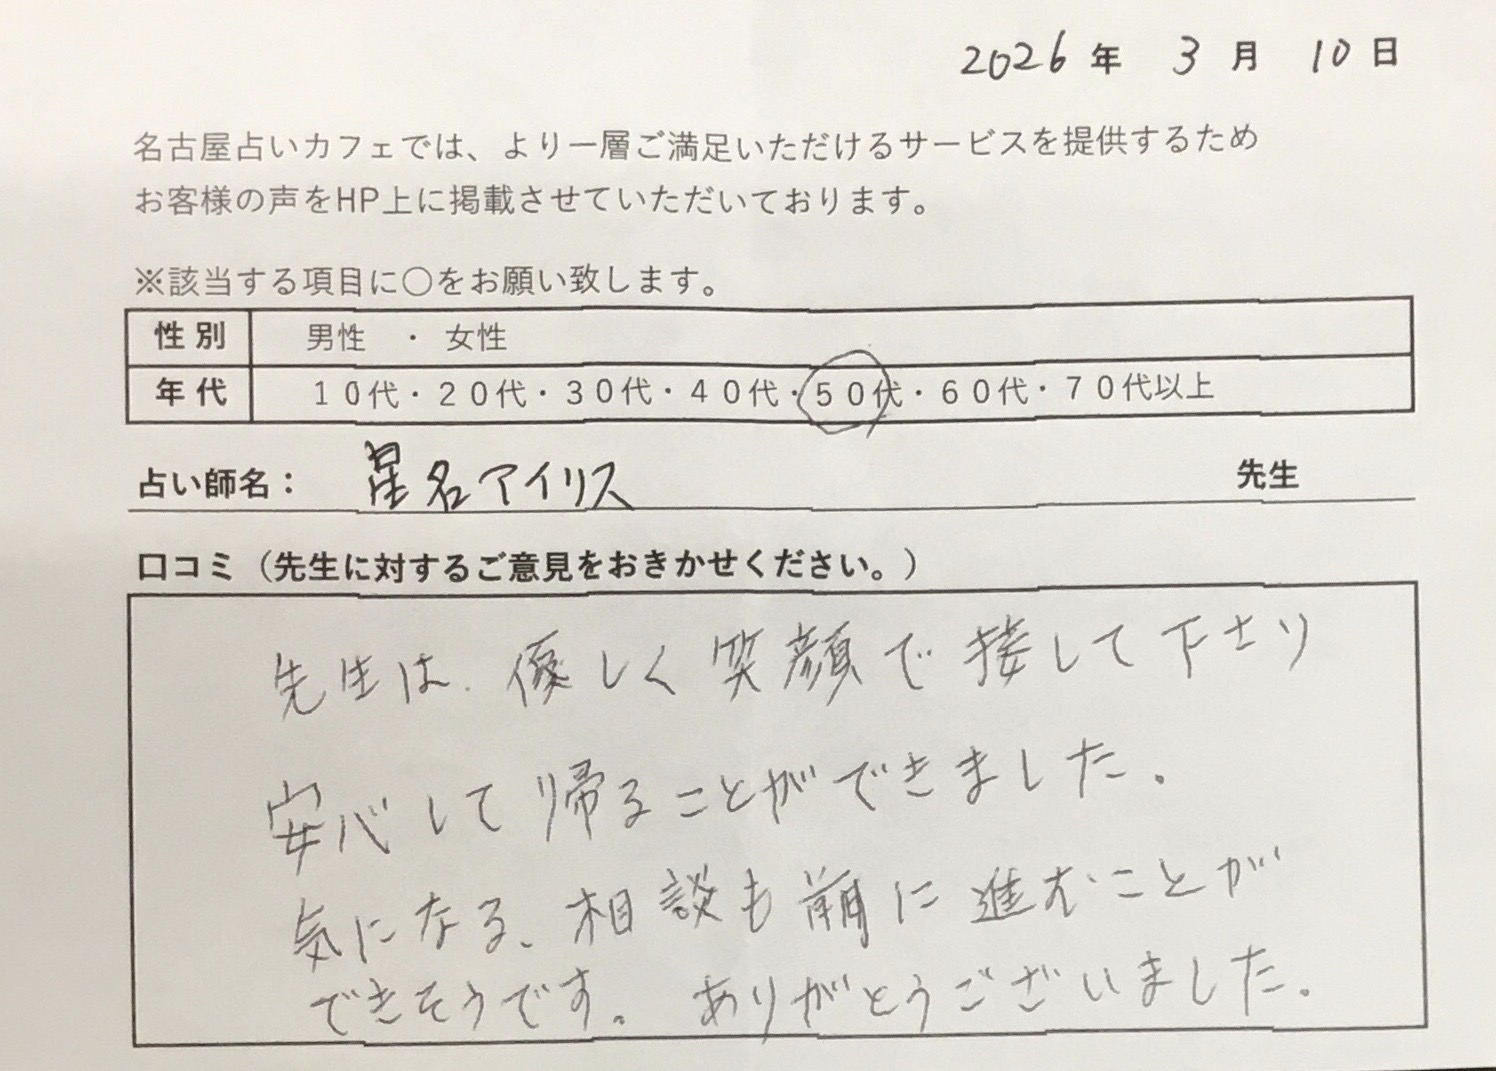 2026年 3月 10日
名古屋占いカフェでは、より一層ご満足いただけるサービスを提供するため
お客様の声をHP上に掲載させていただいております。
※該当する項目に○をお願い致します。
性別 男性 ・ 女性
年代 10代・20代・30代・40代・50代・60代・70代以上
占い師名： 星名アイリス 先生
口コミ（先生に対するご意見をおきかせください。）
先生は、優しく笑顔で接して下さり
安心して帰ることができました。
気になる、相談も前に進むことが
できそうです。ありがとうございました。